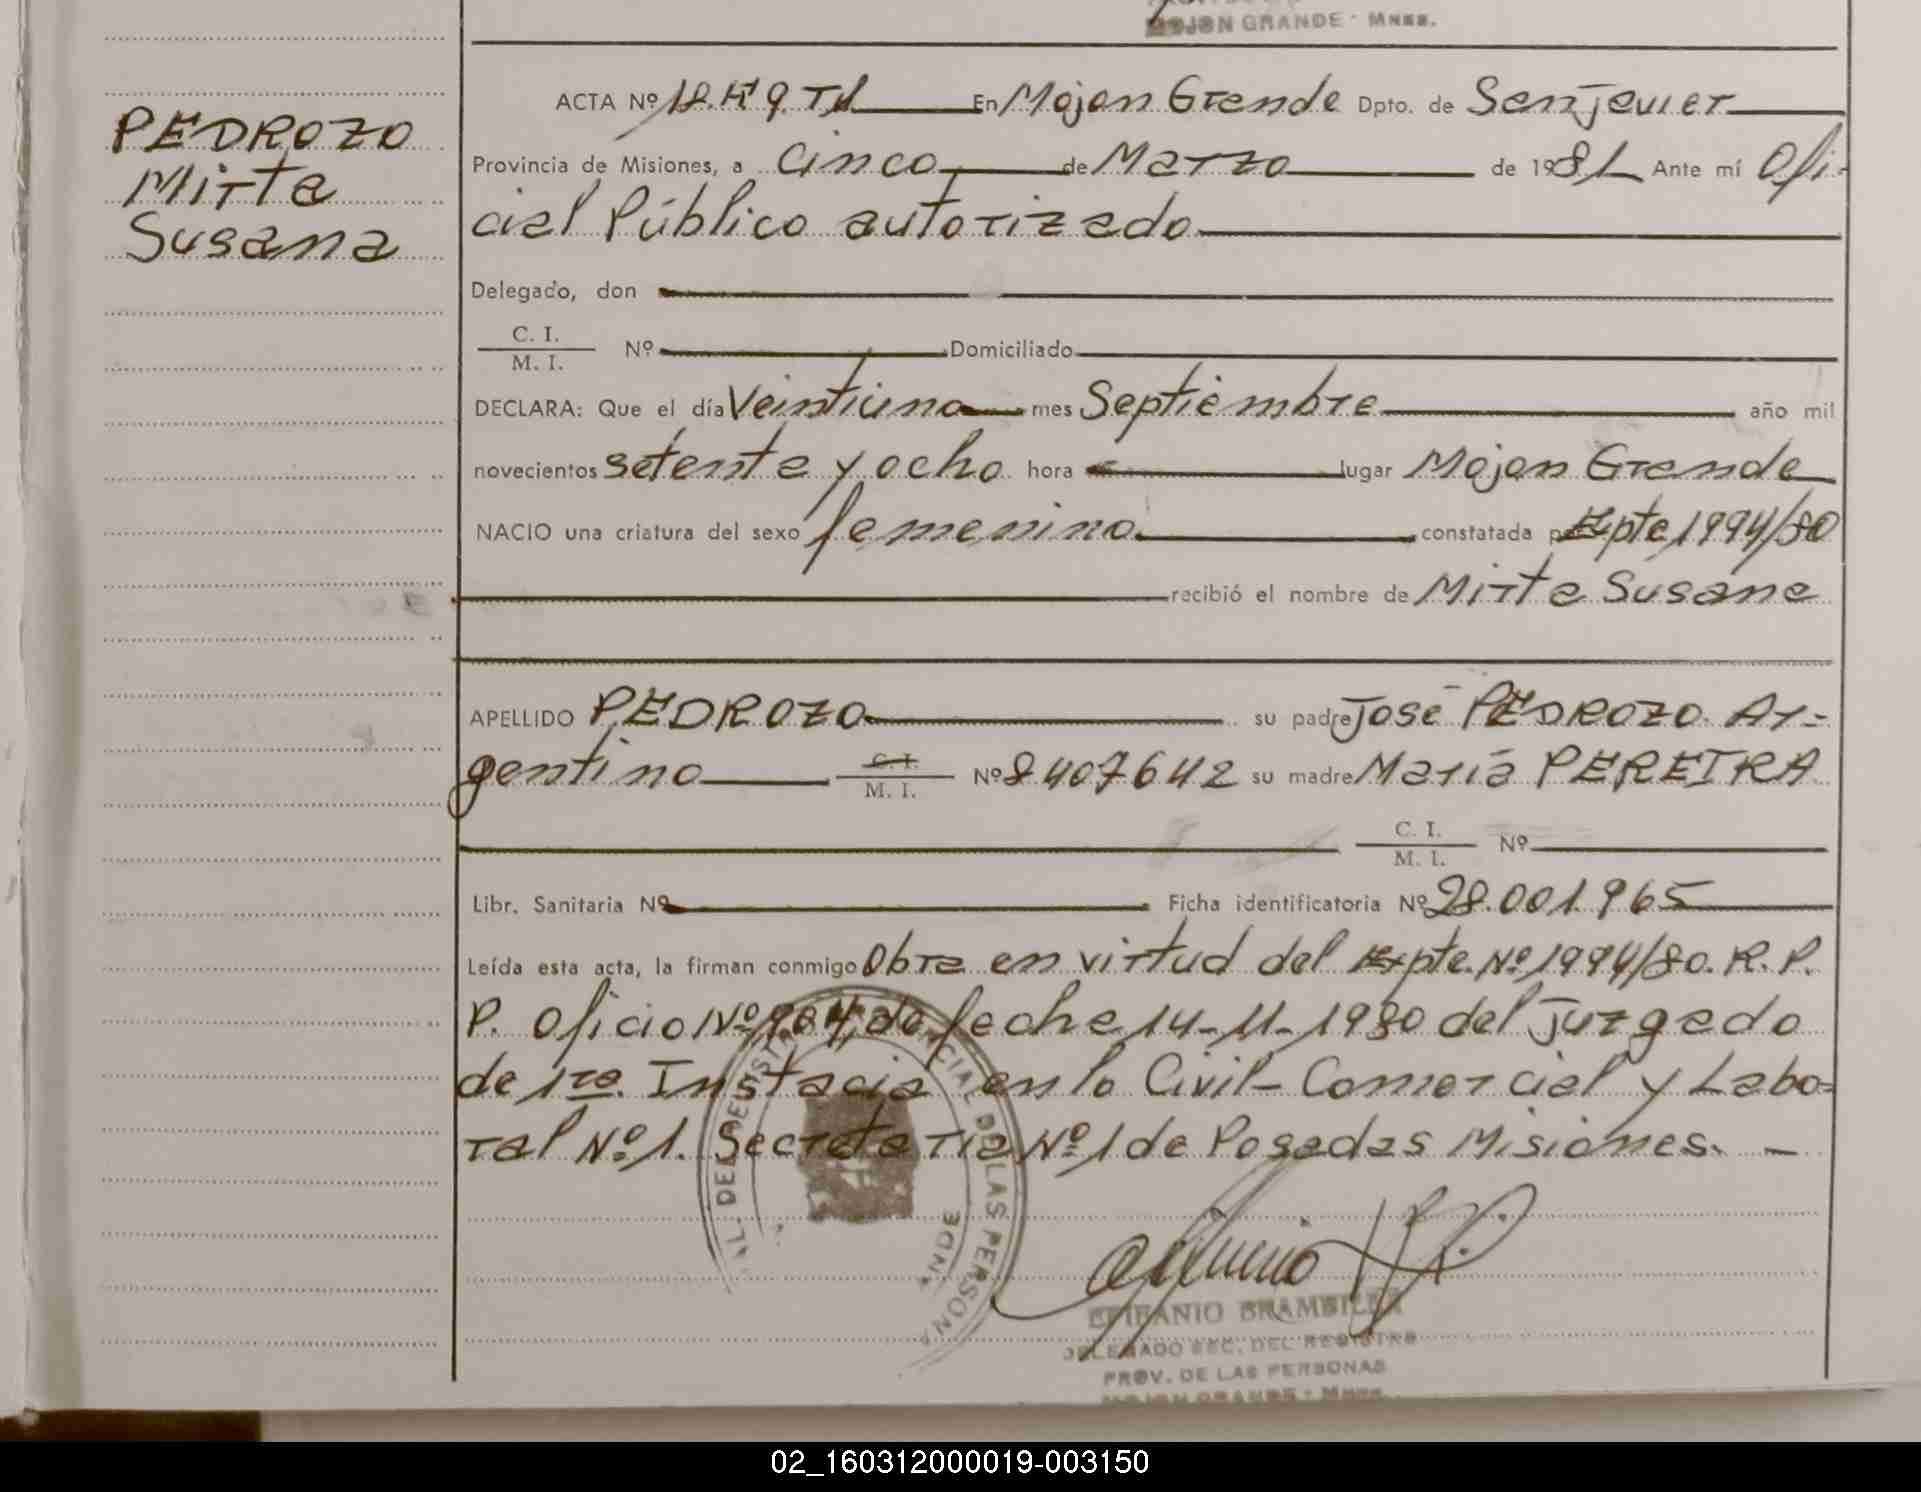 MOJON GRANDE - Mnes.
PEDROZO
Mirta
Susana
ACTA Nº 18. Fº 9. Tº1 En Mojon Grande Dpto. de San Javier
Provincia de Misiones, a Cinco de Marzo de 1981 Ante mí Ofi-
cial Público autorizado
Delegado, don
C. I.
M. I. Nº Domiciliado
DECLARA: Que el día Veintiuno mes Septiembre año mil
novecientos setenta y ocho hora lugar Mojon Grande
NACIO una criatura del sexo femenino constatada p Expte 1994/80
recibió el nombre de Mirta Susana
APELLIDO PEDROZO su padre José PEDROZO. Ar-
gentino C. I.
M. I. Nº 8407642 su madre María PEREIRA
C. I.
M. I. Nº
Libr. Sanitaria Nº Ficha identificatoria Nº 28.001.965
Leída esta acta, la firman conmigo Obra en virtud del Expte. Nº 1994/80. R. P.
P. Oficio Nº 904, de fecha 14-11-1980 del Juzgado
de 1ra. Instacia en lo Civil-Comercial y Labo-
ral Nº 1. Secretaria Nº 1 de Posadas Misiones. -
DEL REGISTRO PROVINCIAL DE LAS PERSONA
ANDE
EPIFANIO BRAMBILLA
DELEGADO SEC. DEL REGISTRO
PROV. DE LAS PERSONAS
MOJON GRANDE - Mnes.
02_160312000019-003150